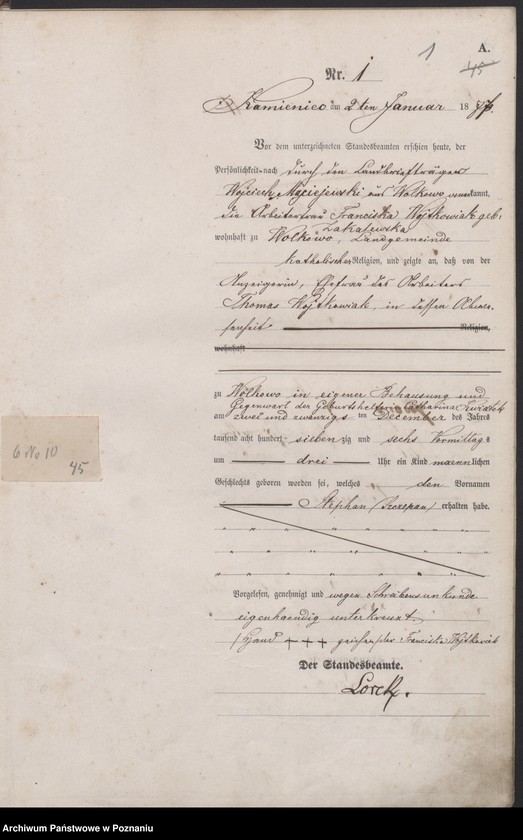 1
A.
45
Nr. 1
Kamienico am 2ten Januar 1877.
Vor dem unterzeichneten Standesbeamten erschien heute, der
Persönlichkeit nach durch den Landbriefträger
Wojciech Maciejewski aus Wolkowo anerkannt,
die Arbeiterfrau Franciska Wojtkowiak geb:
Zakajewska
wohnhaft zu Wolkowo, Landgemeinde
katholischer Religion, und zeigte an, daß von der
Anzeigerin, Ehefrau des Arbeiters
Thomas Wojtkowiak, in dessen Abwe-
senheit Religion,
wohnhaft
zu Wolkowo in eigener Behausung und
Gegenwart der Geburtshelferin Catharina
am zwei und zwanzigs ten December des Jahres
tausend acht hundert sieben zig und sechs Vormittags
um drei Uhr ein Kind maennlichen
Geschlechts geboren worden sei, welches den Vornamen
Stephan (Szczepan) erhalten habe.
Vorgelesen, genehmigt und wegen Schreibensunkunde
eigenhaendig unterkreuzt.
(Hand +++ zeichen) der Franciska Wojtkowiak
Der Standesbeamte.
Lorck.
6 No 10
45
Archiwum Państwowe w Poznaniu